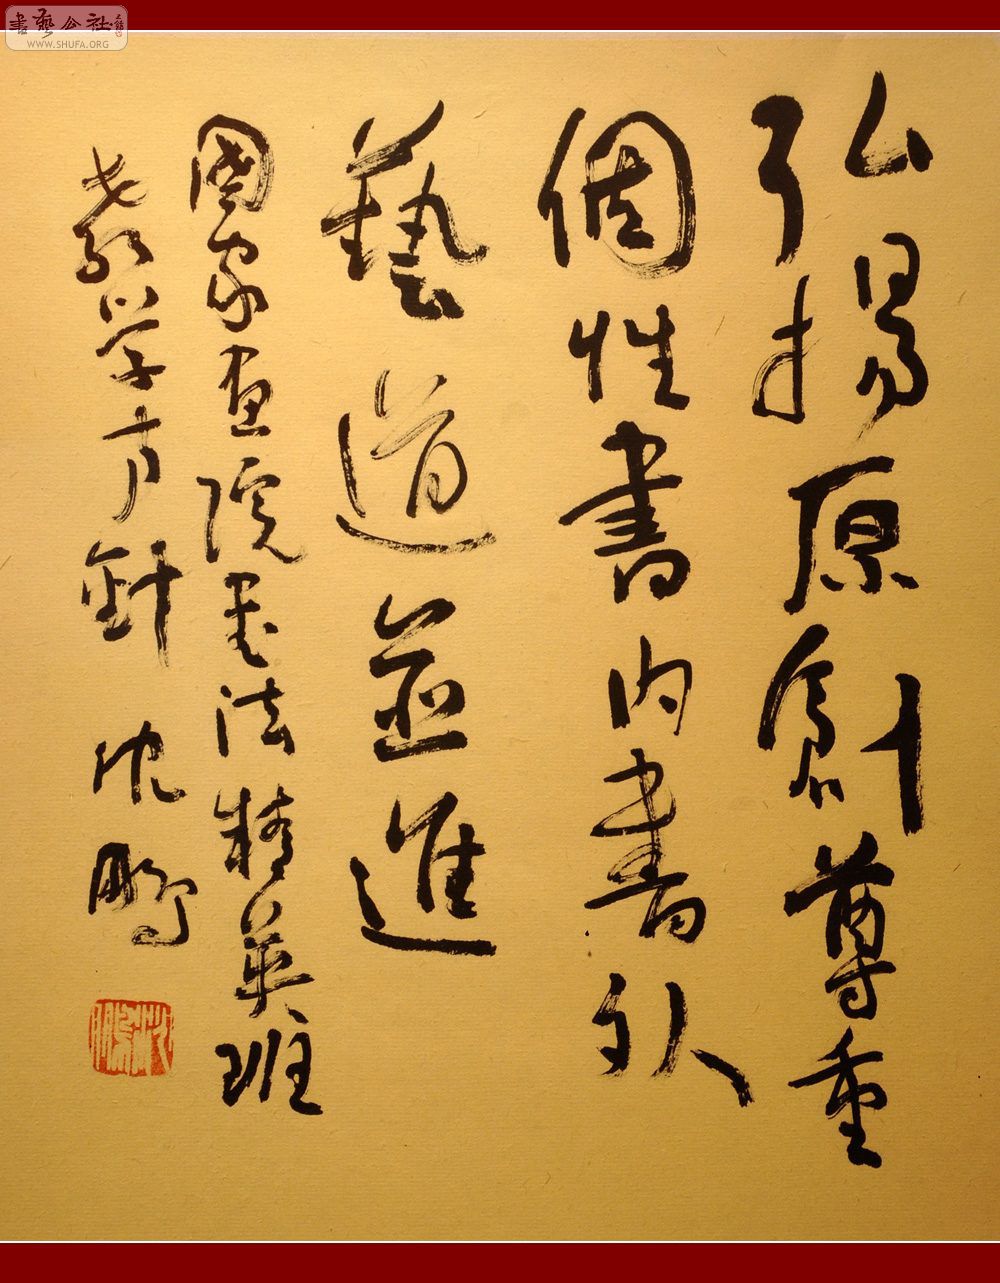 弘揚原創尊重
個性書內書外
藝道並進
國家画院書法精英班
教学方針 沈鵬
書藝公社
WWW.SHUFA.ORG